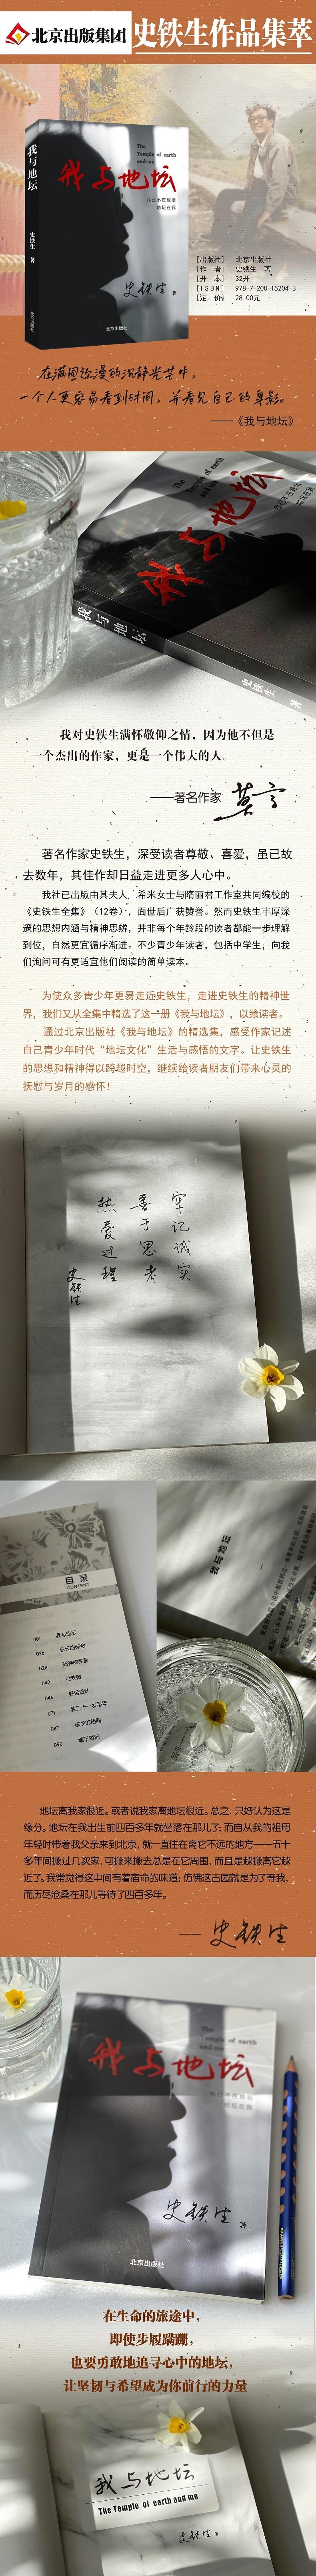 北京出版集团
史铁生作品集萃
我与地坛
史铁生 著
北京出版社
The
Temple of earth
and me
我与地坛
我已不在地坛
地坛在我
史铁生 著
北京出版社
[出版社] 北京出版社
[作 者] 史铁生 著
[开 本] 32开
[ISBN] 978-7-200-15204-3
[定 价] 28.00元
在满园弥漫的沉静光芒中，
一个人更容易看到时间，并看见自己的身影。
——《我与地坛》
我与地坛
我与地坛
史铁生 著
我对史铁生满怀敬仰之情，因为他不但是
一个杰出的作家，更是一个伟大的人。
——著名作家 莫言
著名作家史铁生，深受读者尊敬、喜爱，虽已故
去数年，其佳作却日益走进更多人心中。
我社已出版由其夫人 希米女士与隋丽君工作室共同编校的
《史铁生全集》（12卷），面世后广获赞誉。然而史铁生丰厚深
邃的思想内涵与精神思辨，并非每个年龄段的读者都能一步理解
到位，自然更宜循序渐进。不少青少年读者，包括中学生，向我
们询问可有更适宜他们阅读的简单读本。
为使众多青少年更易走近史铁生，走进史铁生的精神世
界，我们又从全集中精选了这一册《我与地坛》，以飨读者。
通过北京出版社《我与地坛》的精选集，感受作家记述
自己青少年时代“地坛文化”生活与感悟的文字。让史铁生
的思想和精神得以跨越时空，继续给读者朋友们带来心灵的
抚慰与岁月的感怀！
牢记诚实
善于思考
热爱过程
史铁生
目录
CONTENT
001 我与地坛
026 秋天的怀念
028
042 合欢树
046 好运设计
071 我二十一岁那年
087 故乡的胡同
090 墙下短记
我与地坛
地坛离我家很近。或者说我家离地坛很近。总之，只好认为这是
缘分。地坛在我出生前四百多年就坐落在那儿了；而自从我的祖母
年轻时带着我父亲来到北京，就一直住在离它不远的地方——五十
多年间搬过几次家，可搬来搬去总是在它周围，而且是越搬离它越
近了。我常觉得这中间有着宿命的味道：仿佛这古园就是为了等我，
而历尽沧桑在那儿等待了四百多年。
—— 史铁生
The
Temple of earth
and me
我与地坛
我已不在地坛
地坛在我
史铁生 著
北京出版社
在生命的旅途中，
即使步履蹒跚，
也要勇敢地追寻心中的地坛，
让坚韧与希望成为你前行的力量
我与地坛
The Temple of earth and me
史铁生 著